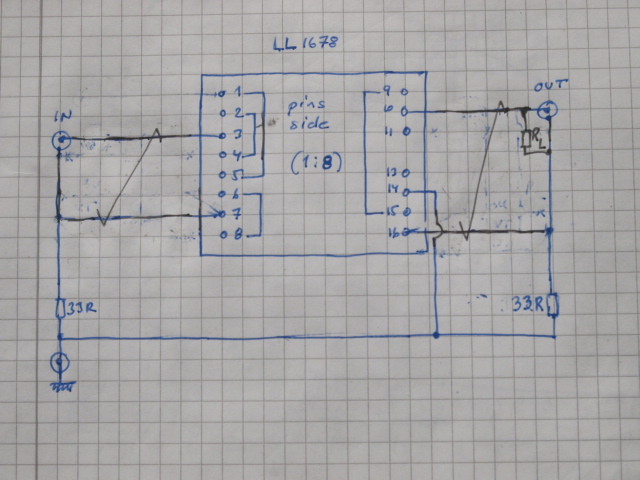 LL1678
IN
OUT
1
2
3
4
5
6
7
8
pins
side
(1:8)
9
10
11
13
14
15
16
RL
33R
33R